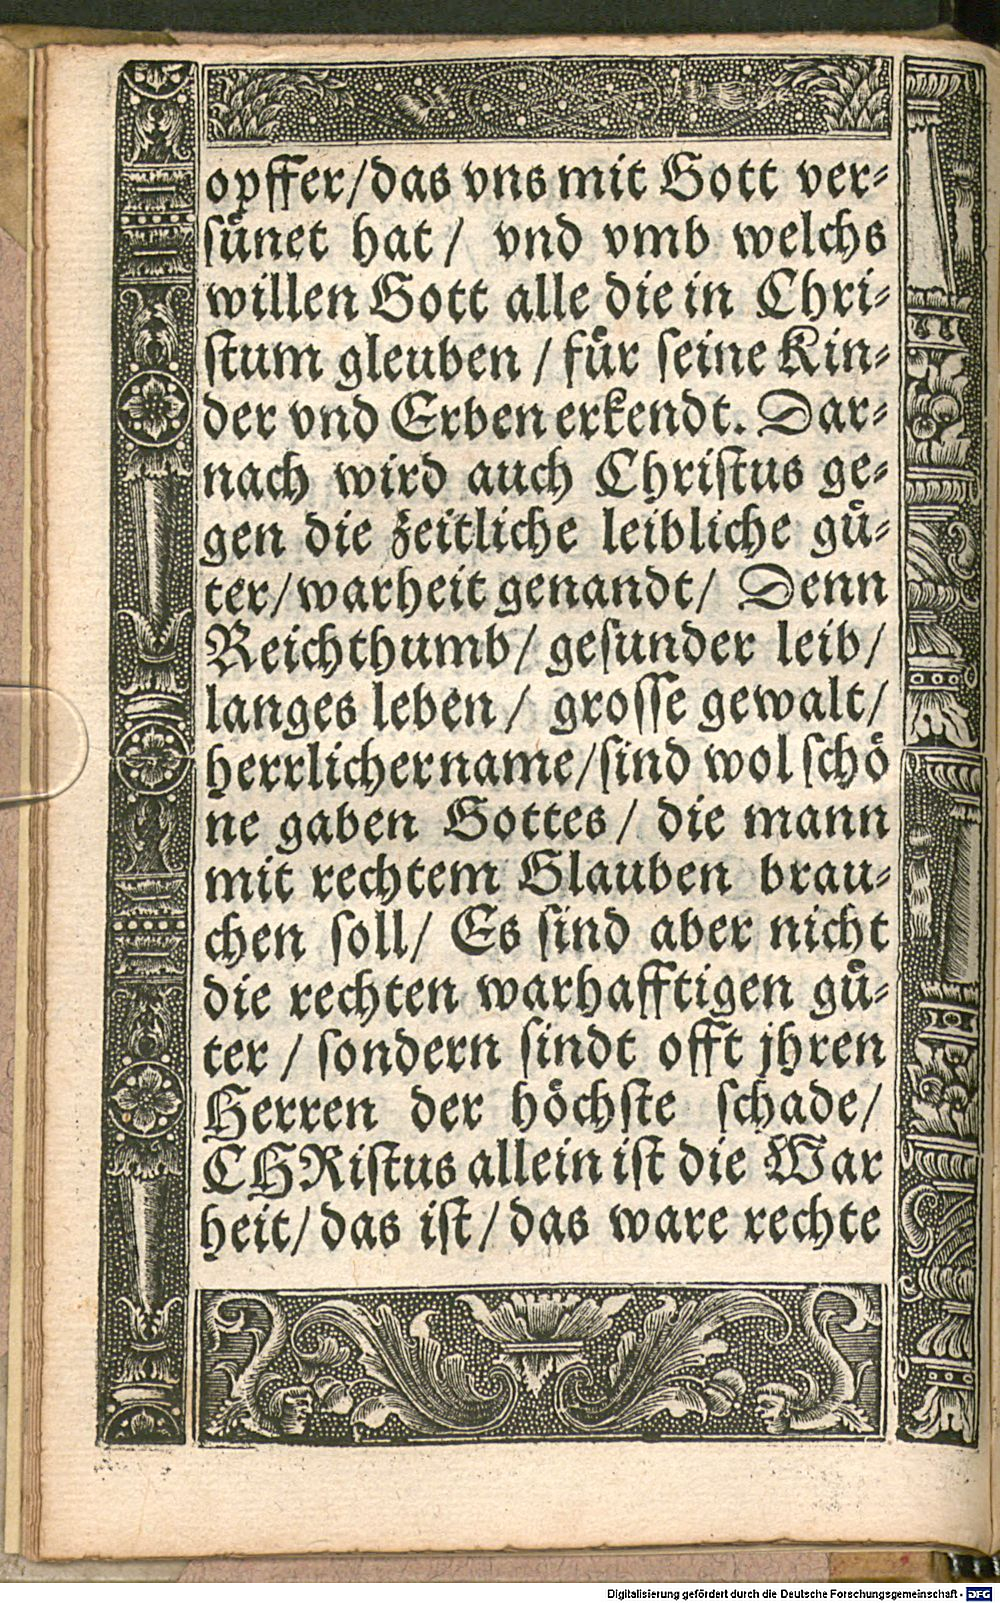 opffer/das vns mit Gott ver⸗
sünet hat/ vnd vmb welchs
willen Gott alle die in Chri⸗
stum gleuben/für seine Kin⸗
der vnd Erben erkendt. Dar⸗
nach wird auch Christus ge⸗
gen die zeitliche leibliche gü⸗
ter/warheit genandt/ Denn
Reichthumb/gesunder leib/
langes leben/ grosse gewalt/
herrlicher name/sind wol schö
ne gaben Gottes/ die mann
mit rechtem Glauben brau⸗
chen soll/ Es sind aber nicht
die rechten warhafftigen gü⸗
ter/sondern sindt offt jhren
Herren der höchste schade/
CHRistus allein ist die War
heit/das ist/das ware rechte
Digitalisierung gefördert durch die Deutsche Forschungsgemeinschaft - DFG